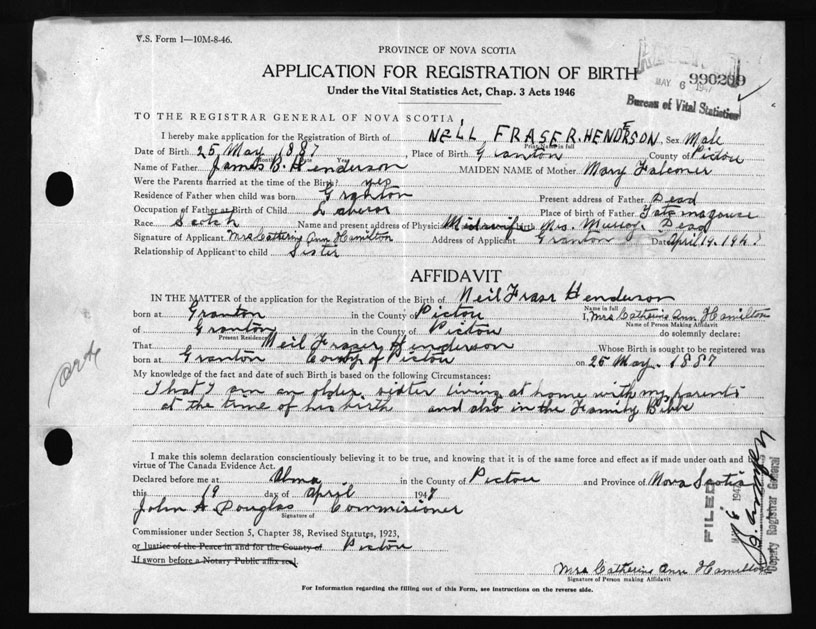 V.S. Form 1—10M-8-46.
PROVINCE OF NOVA SCOTIA
APPLICATION FOR REGISTRATION OF BIRTH
Under the Vital Statistics Act, Chap. 3 Acts 1946
MAY 6 1947 990209
Bureau of Vital Statistics
TO THE REGISTRAR GENERAL OF NOVA SCOTIA
I hereby make application for the Registration of Birth of NEIL FRASER HENDERSON, Sex Male
Print Name in full
Date of Birth 25 May 1887 Place of Birth Granton County of Pictou
Month Year
Name of Father James B. Henderson MAIDEN NAME of Mother Mary Falconer
Were the Parents married at the time of the Birth? yes
Residence of Father when child was born Granton Present address of Father Dead
Occupation of Father at Birth of Child Laborer Place of birth of Father Tatamagouse
Race Scotch Name and present address of Physician Midwife Mrs. Murray, Dead
Signature of Applicant Mrs Catherine Ann Hamilton Address of Applicant Granton Date April 19. 1947
Relationship of Applicant to child Sister
AFFIDAVIT
IN THE MATTER of the application for the Registration of the Birth of Neil Fraser Henderson
Name in full
born at Granton in the County of Pictou I, Mrs Catherine Ann Hamilton
Name of Person Making Affidavit
of Granton in the County of Pictou do solemnly declare:
Present Residence
That Neil Fraser Henderson Whose Birth is sought to be registered was
born at Granton County of Pictou on 25 May. 1887
My knowledge of the fact and date of such Birth is based on the following Circumstances:
That I am an older sister living at home with my parents
at the time of his birth and also in the Family Bible
I make this solemn declaration conscientiously believing it to be true, and knowing that it is of the same force and effect as if made under oath and by
virtue of The Canada Evidence Act.
Declared before me at Alma in the County of Pictou and Province of Nova Scotia
this 19 day of April 1947
John A Douglas Commissioner
Signature of
Commissioner under Section 5, Chapter 38, Revised Statutes, 1923,
or Justice of the Peace in and for the County of Pictou
If sworn before a Notary Public affix seal.
FILED
6 1947
Deputy Registrar General
Mrs Catherine Ann Hamilton
Signature of Person making Affidavit
For Information regarding the filling out of this Form, see instructions on the reverse side.